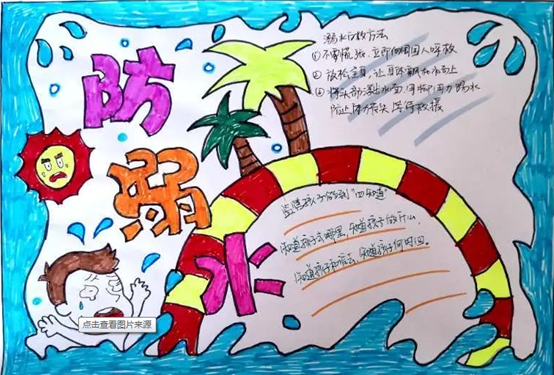 防
溺
水
溺水自救方法
①不要慌张,立即向周围人呼救
②放松全身,让身体飘在水面上
③将头部浮出水面,用脚用力踢水
防止体力丧失 等待救援
监护孩子做到"四知道"
知道孩子去哪里,知道孩子 什么,
知道孩子和谁去,知道孩子何时回。
点击查看图片来源